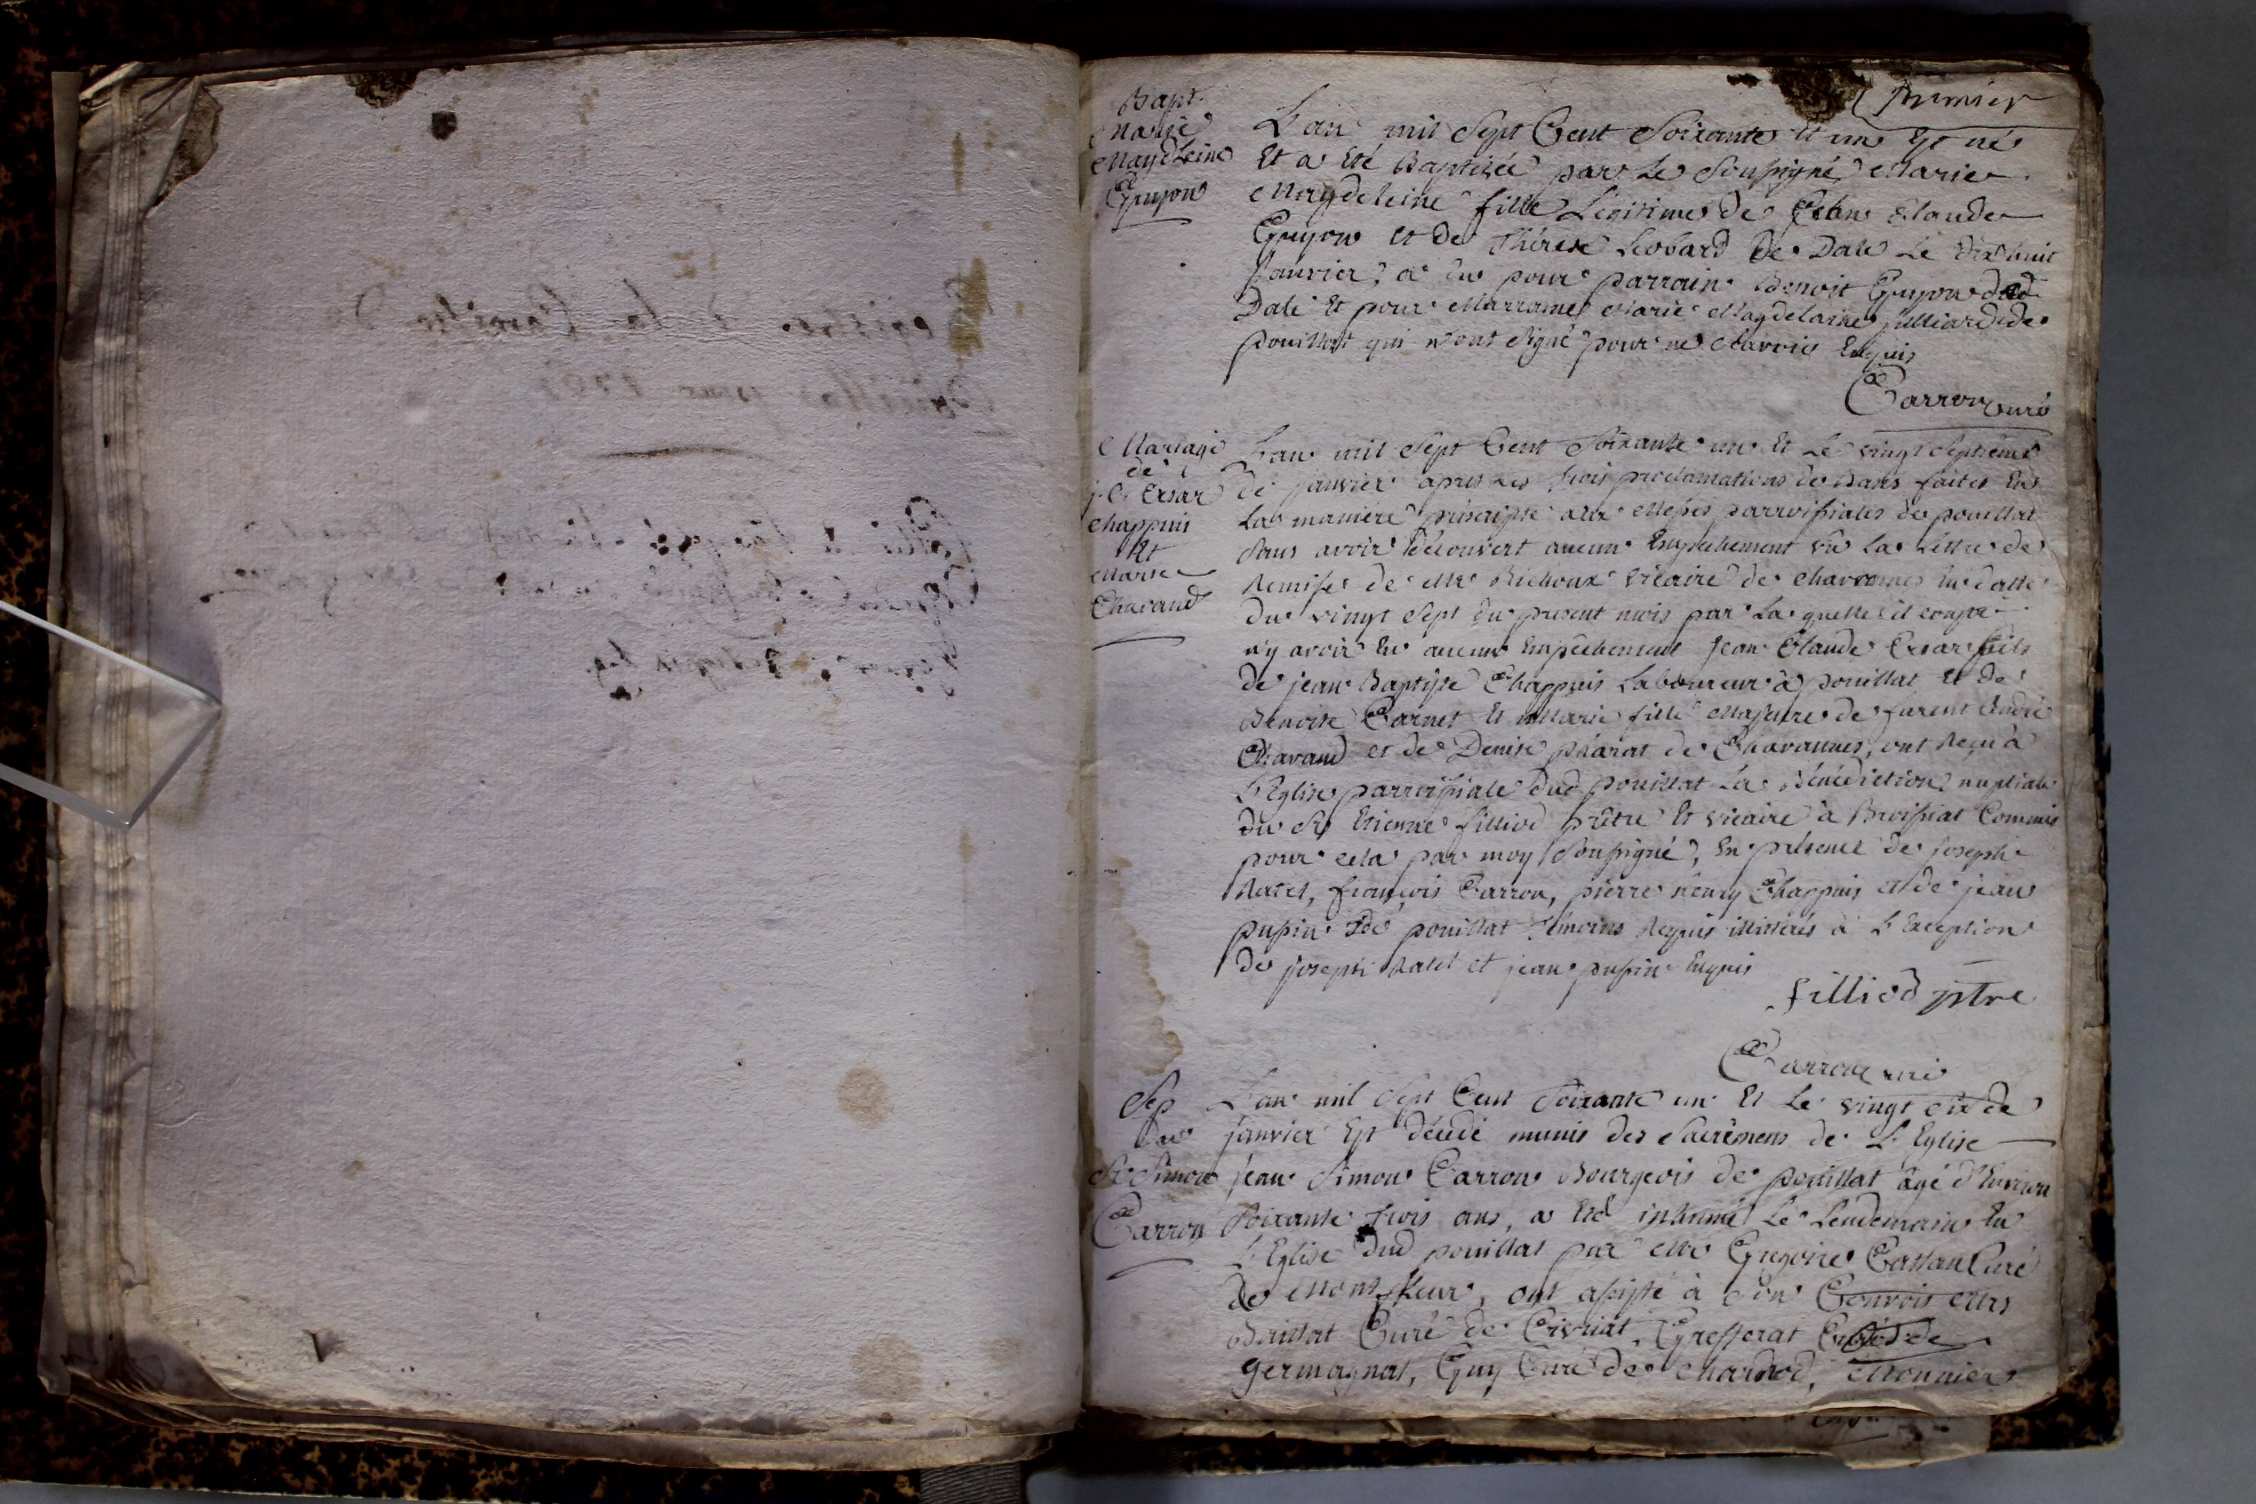 premier
Bapt.
Marie
Magdleine
Guyon
L'an mil sept Cent Soixante et un Est né
Et a Eté Baptisée par Le Soussigné Marie
Magdeleine fille Légitime de Jean Claude
Guyon et de Thérese Leobard de Dale Le dix huit
Janvier, a eu pour parrain Benoit Guyon dud
Dale Et pour Marraine Marie Magdelaine julliard de
pouillat qui n'ont signé pour ne Enquis
Carron Curé
Mariage
de
j. C. Cesar
Chappuis
Et
Marie
Chavand
L'an mil sept Cent Soixante un Et Le vingt septieme
de janvier apres Les trois proclamations de Bans faites En
La maniere prescripte aux Messes parroissiales de pouillat
sans avoir découvert aucun Empechement vû La Lettre de
Remise de Mre Richoux vicaire de Chavannes En datte
du vingt sept du present mois par La quelle il conste
n'y avoir Eu aucun Empêchement jean Claude Cesar fils
de jean Baptiste Chappuis Laboureur à pouillat Et de
Benoite Carnet Et Marie fille Majeure de furent André
Chavand et de Denise de Chavannes, ont Reçu à
L'Eglise parroissiale dud pouillat La Bénédiction nuptiale
du Sr Etienne filliod prêtre Et vicaire à Broissiat Commis
pour cela par moy Soussigné, En présence de joseph
Ratel, françois Carron, pierre henry Chappuis et de jean
pupin de pouillat Témoins Requis illitérés à L'Exception
de joseph Ratel et jean pupin Enquis
filliod ptre
Carron curé
Sep
De
Sr Simon
Carron
L'an mil Sept Cent Soixante un Et Le vingt six de
janvier Est décédé munis des Sacremens de L'Eglise
jean Simon Carron Bourgeois de pouillat âgé d'Environ
Soixante trois ans, a Eté inhumé Le Lendemain En
L'Eglise dud pouillat par Mre Gregoire Cattan Curé
de Montfleur, ont assisté à Son Convois Mrs
Baillat Curé de Civriat, Grefferat Curé de
Germagnat, Guy Curé de Marbod, Monnier